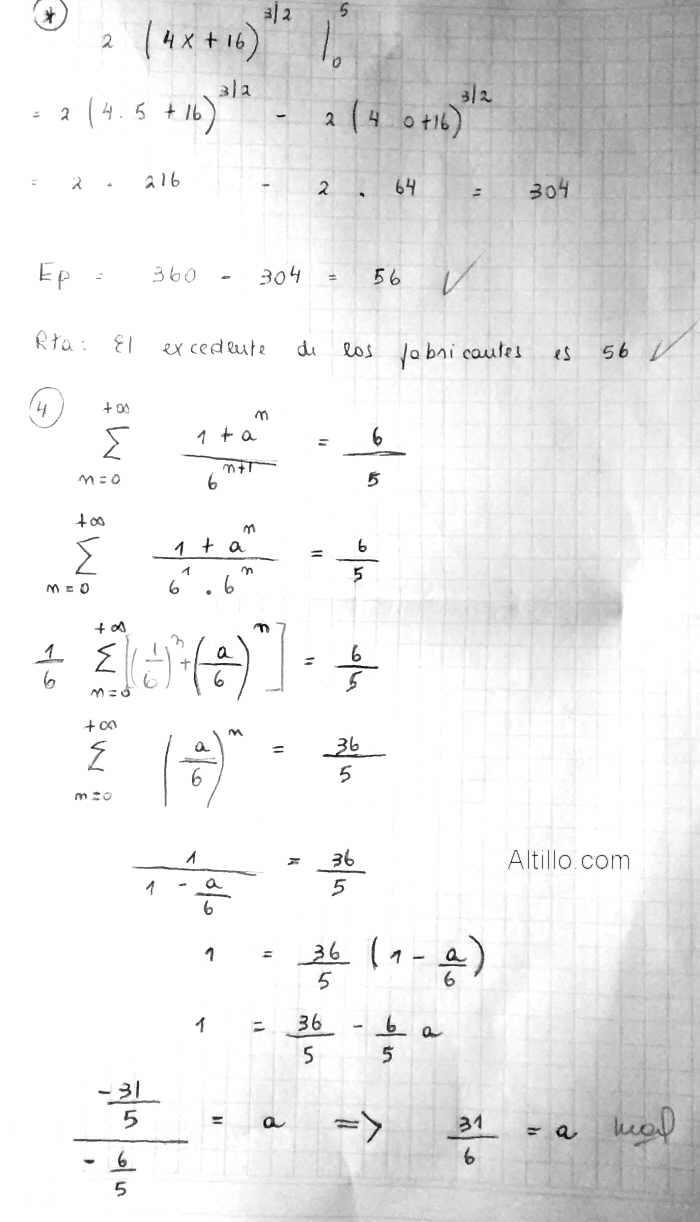 *
2 (4x + 16)^{3/2} |_0^5
= 2 (4 . 5 + 16)^{3/2} - 2 (4 0 + 16)^{3/2}
= 2 . 216 - 2 . 64 = 304
Ep = 360 - 304 = 56 ✓
Rta: El excedente de los fabricantes es 56 ✓
4
+∞ ∑ n=0 (1 + a^n)/(6^{n+1}) = 6/5
+∞ ∑ n=0 (1 + a^n)/(6^1 . 6^n) = 6/5
1/6 +∞ ∑ n=0 [(1/6)^n + (a/6)^n] = 6/5
+∞ ∑ n=0 (a/6)^n = 36/5
1/(1 - a/6) = 36/5
Altillo.com
1 = 36/5 (1 - a/6)
1 = 36/5 - 6/5 a
(-31/5)/(-6/5) = a => 31/6 = a mal